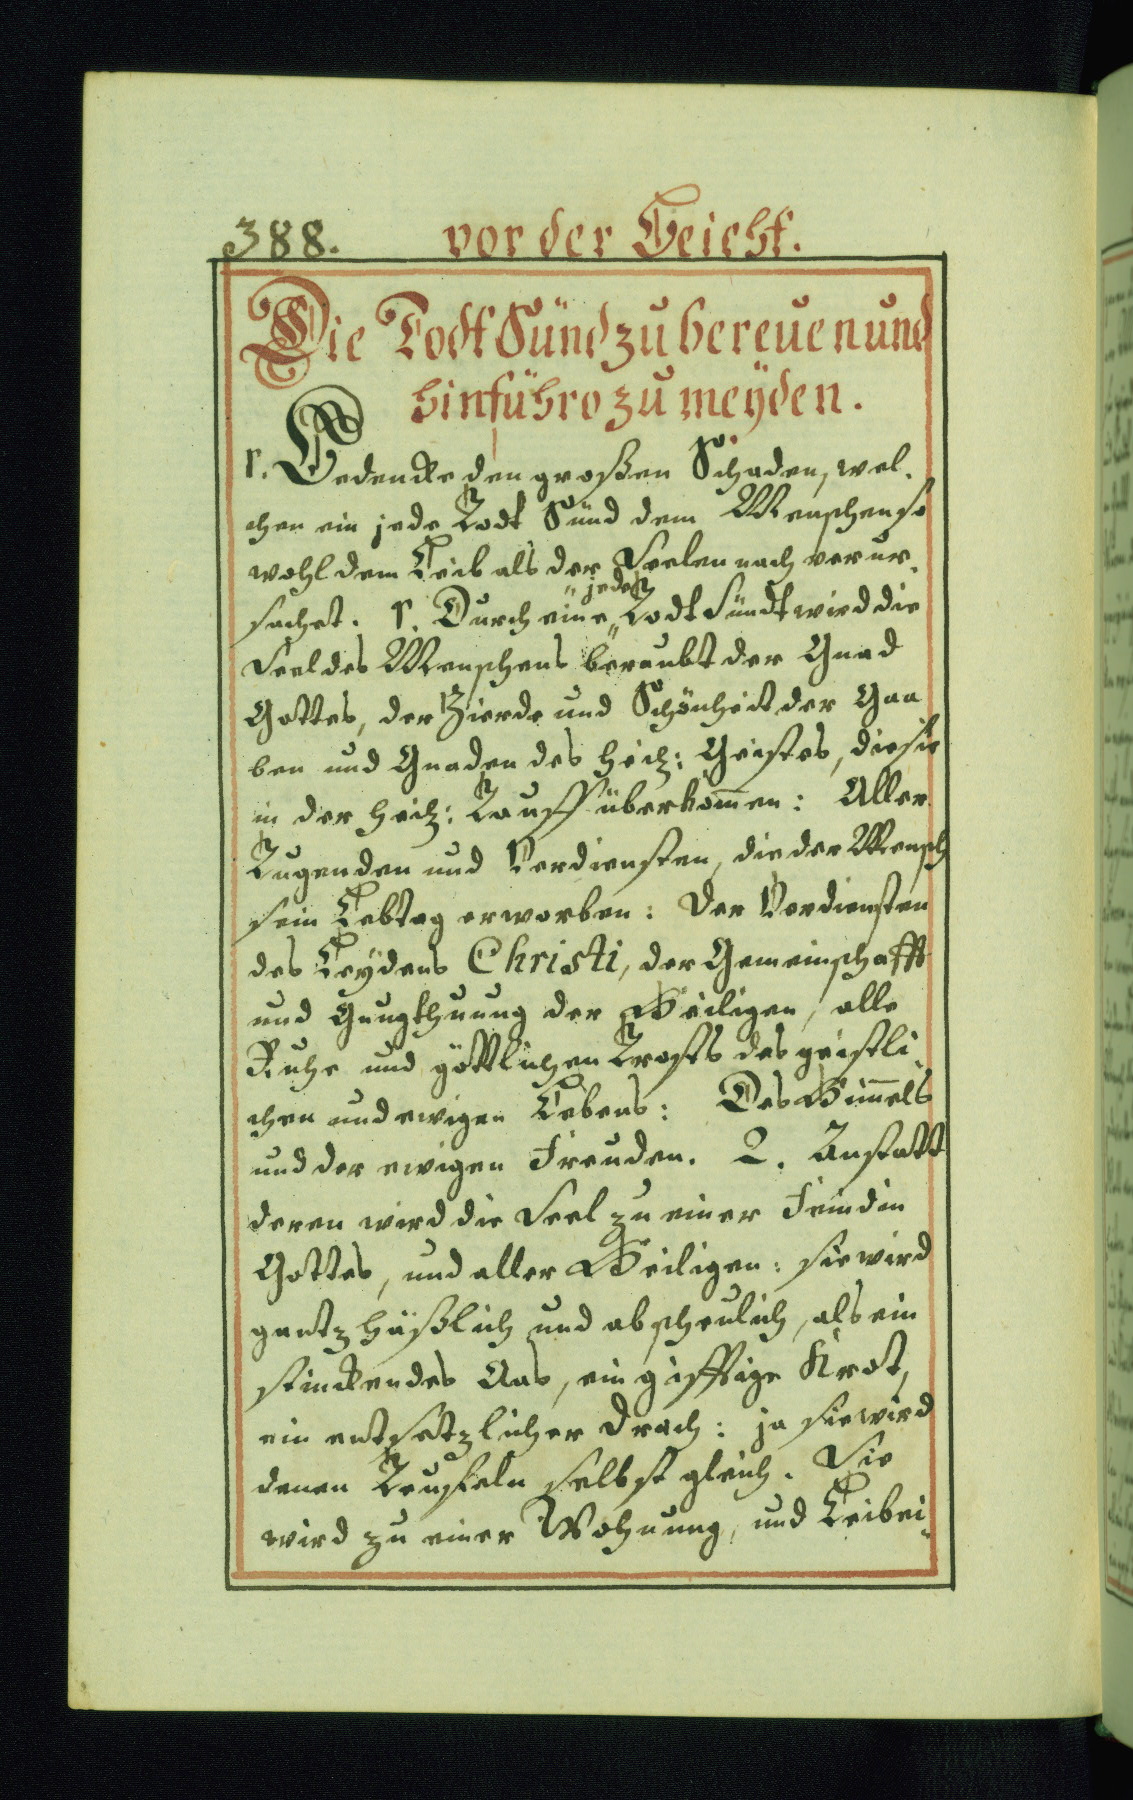 388. vor der Beicht.
Die Todt Sünd zu bereuen und
hinführo zu meÿden.
1. Gedencke den großen Schaden, wel-
chen ein jede Todt Sünd dem Menschen so
wohl dem Leib als der Seelen nach verur-
jede
sachet. 1. Durch eine Todt Sündt wird die
Seel des Menschens beraubt der Gnad
Gottes, der Zierde und Schönheit der Gaa
ben und Gnaden des heil: Geistes, die sie
in der heil: Tauff überkom̄en: Aller
Tugenden und Verdiensten, die der Mensch
sein Lebtag erworben: der Verdiensten
des Leÿdens Christi, der Gemeinschafft
und Gnugthuung der Heiligen, alle
Ruhe und göttlichen Trosts des geistli-
chen und ewigen Lebens: Des Him̄els
und der ewigen Freuden. 2. Anstatt
deren wird die Seel zu einer Feindin
Gottes, und aller Heiligen: sie wird
gantz häßlich und abscheulich, als ein
stinckendes Aas, ein gifftige Krot,
ein entsetzlicher Drach: ja sie wird
denen Teufeln selbst gleich. Sie
wird zu einer Wohnung, und Leibei-